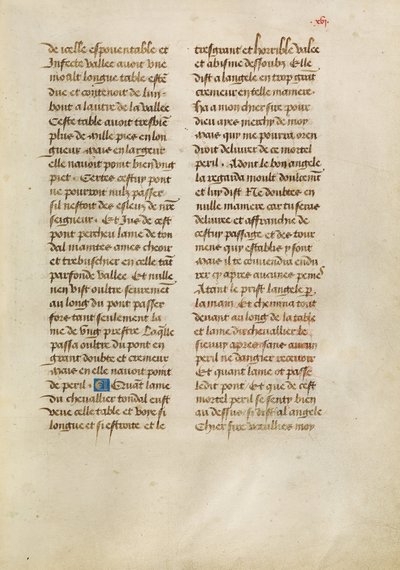 xvi
De icelle espouentable et
Infecte vallee auoit vne
moult longue table esten
due et contenoit de lun
bout a lautre de la vallee
Ceste table auoit tresbien
plus de mille pies en lon
gueur Mais en largeur
elle nauoit point bien vng
piet. Certes cestuy pont
ne pourroit nulz passer
sil nestoit des esleuz de nre
seigneur. Et Jus de cest
pont percheu lame de ton
dal maintes ames cheoir
et tresbuscher en celle tant
parfonde vallee Et nulle
nen vist oultre seurement
au long du pont passer
fors tant seulement la
me de vng prestre Laqlle
passa oultre du pont en
grant doubte et cremeur
Mais en elle nauoit point
de peril. Quant lame
du cheuallier tondal eust
veue celle table et voye si
longue et si estroite et le
tresgrant et horrible valee
et abisme dessoubz Elle
dist a langele en trop grant
cremeur en telle maniere.
Ha a mon chier sire pour
dieu ayes merchy de moy
Mais qui me pourra oren
droit deliurer de ce mortel
peril. Adont le bon angele
la regarda moult doulcement
et luy dist Ne doubtes en
nulle maniere car tu seras
deliure et affranchie de
cestuy passage et des tour
mens qui establis y sont
Mais il te conuiendra endu
rer cy apres aucunes peines
Atant le prist langele p
la main Et chemina tout
deuant au long de la table
et lame du cheuallier le
sieuuy apres sans aucun
peril ne dangier receuoir
Et quant lame ot passe
ledit pont Et que de cest
mortel peril se senty bien
au dessus si dist al angele
Chier sire vueillies moy